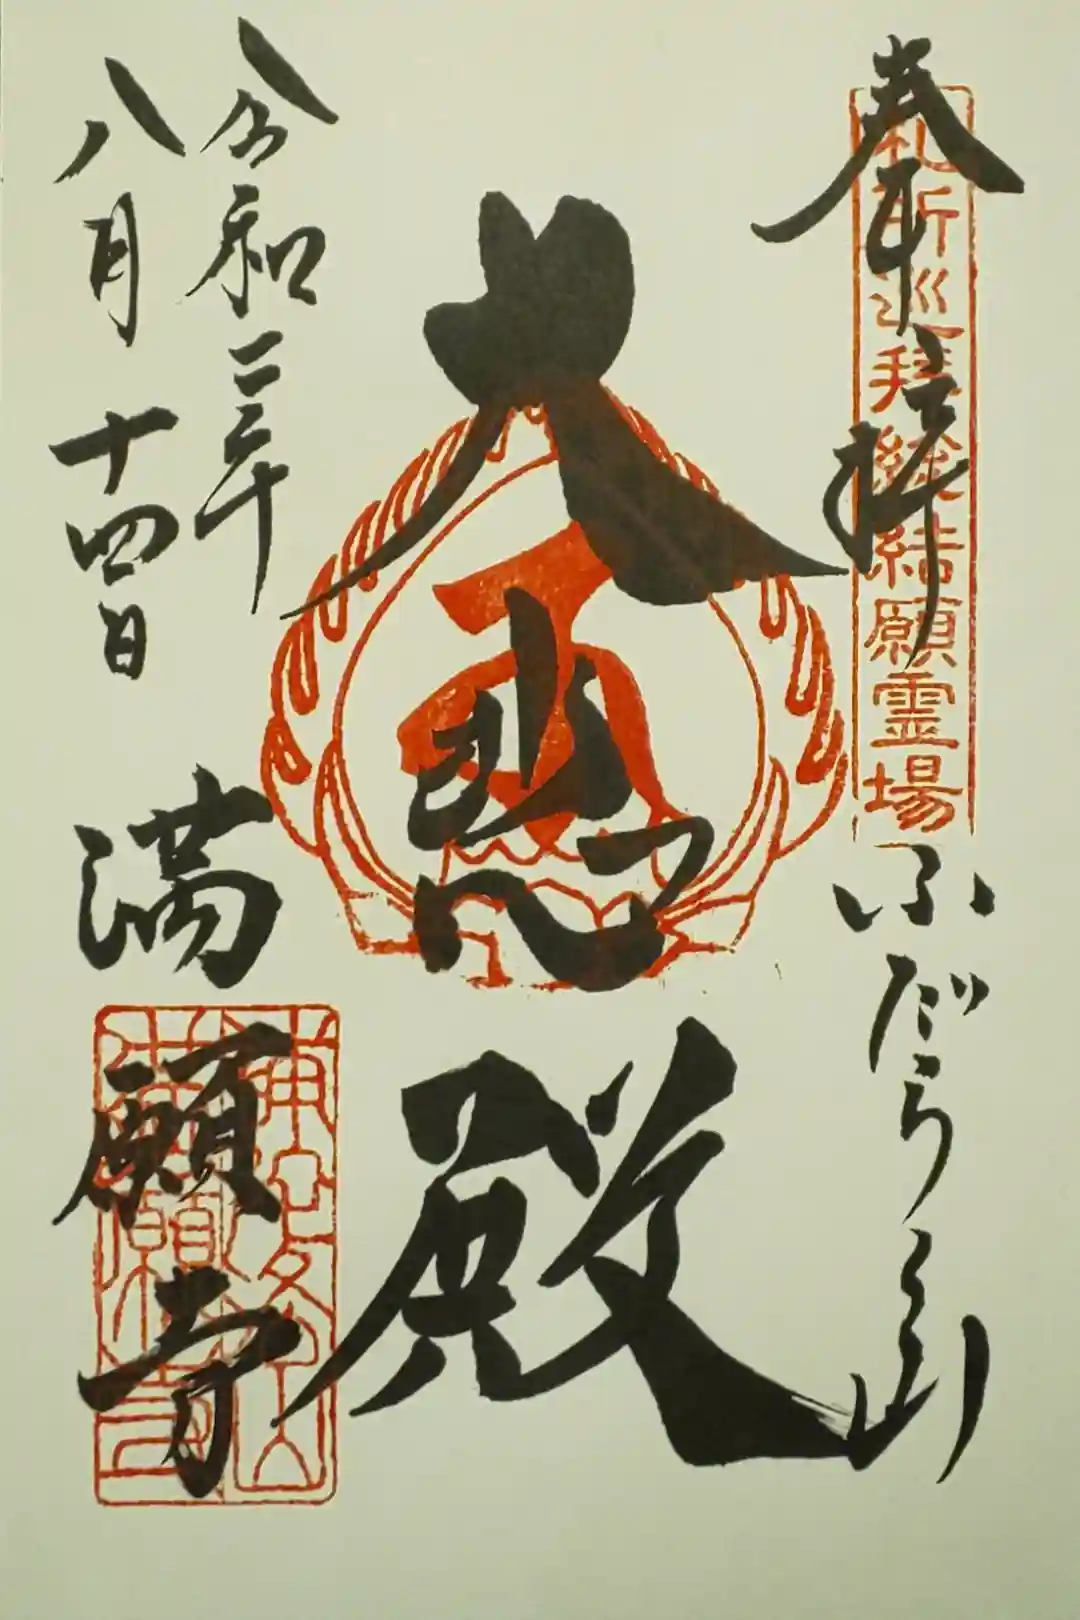 奉拝
ふだらく山
札所巡拝総結願霊場
大悲殿
令和二年
八月十四日
満願寺